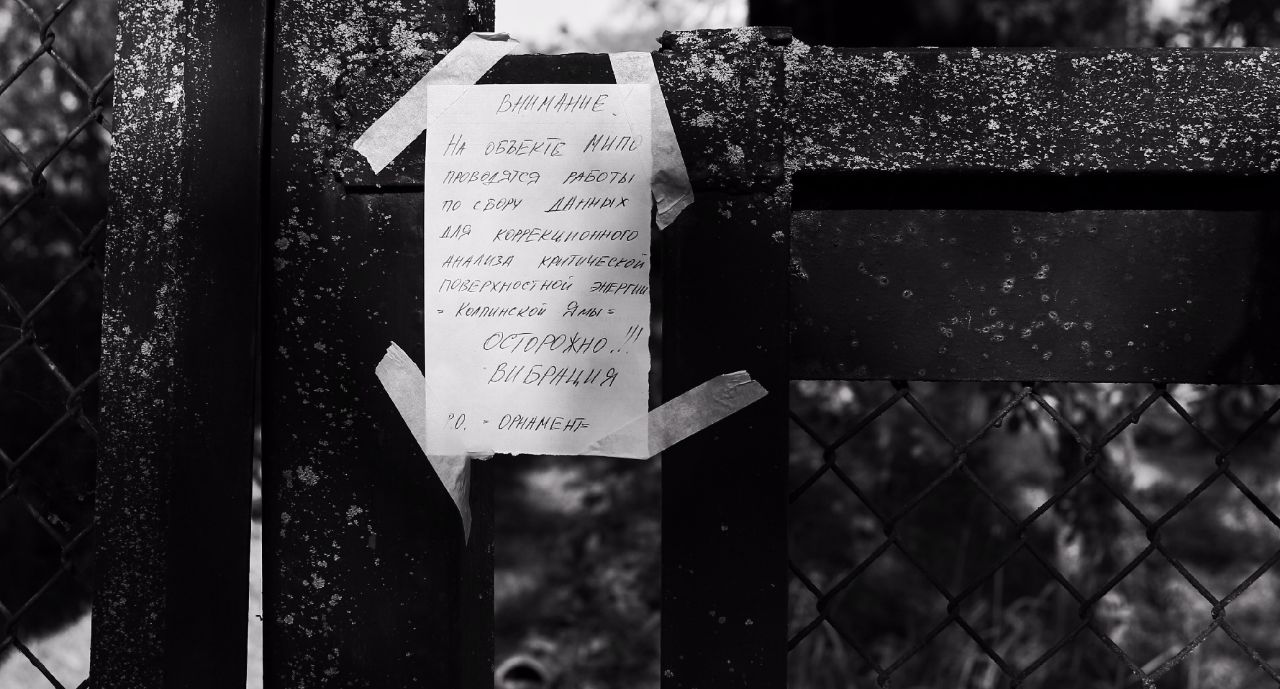 ВНИМАНИЕ.
НА ОБЪЕКТЕ МИПО
ПРОВОДЯТСЯ РАБОТЫ
ПО СБОРУ ДАННЫХ
ДЛЯ КОРРЕКЦИОННОГО
АНАЛИЗА КРИТИЧЕСКОЙ
ПОВЕРХНОСТНОЙ ЭНЕРГИИ
= КОЛПИНСКОЙ ЯМЫ =
ОСТОРОЖНО..!!!
ВИБРАЦИЯ
Р.О. = ОРНАМЕНТ =